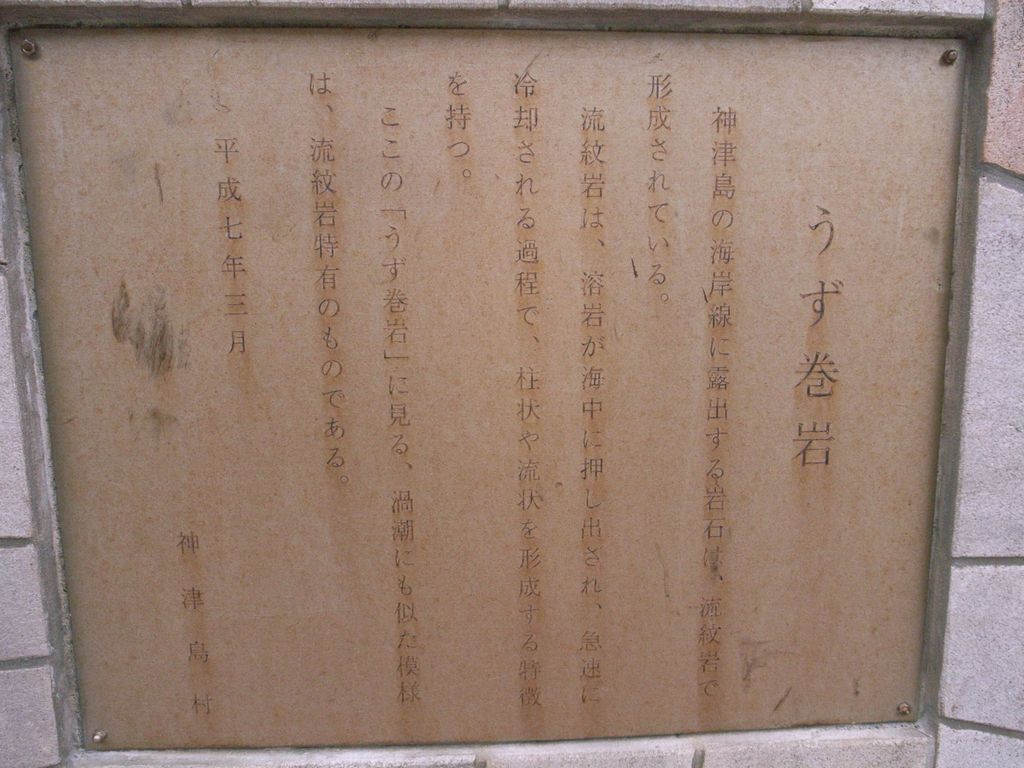 うず巻岩
神津島の海岸線に露出する岩石は、流紋岩で
形成されている。
流紋岩は、溶岩が海中に押し出され、急速に
冷却される過程で、柱状や流状を形成する特徴
を持つ。
ここの「うず巻岩」に見る、渦潮にも似た模様
は、流紋岩特有のものである。
平成七年三月
神津島村